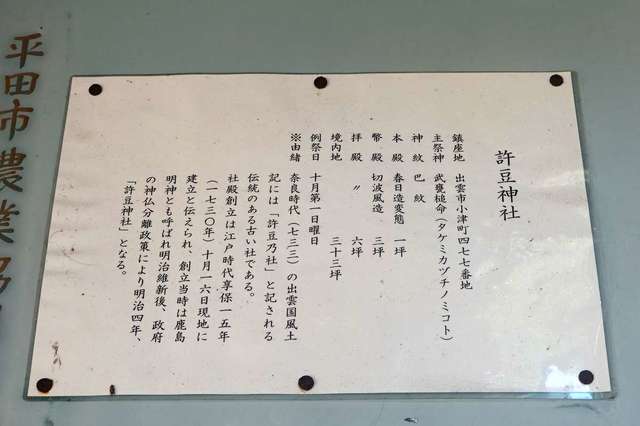 許豆神社
鎮座地 出雲市小津町四七七番地
主祭神 武甕槌命(タケミカヅチノミコト)
神紋 巴紋
本殿 春日造変態 一坪
幣殿 切波風造 三坪
拝殿 〃 六坪
境内地 三十三坪
例祭日 十月第一日曜日
※由緒 奈良時代(七三三)の出雲国風土
記には「許豆乃社」と記される
伝統のある古い社である。
社殿創立は江戸時代享保一五年
(一七三〇年)十月一六日現地に
建立と伝えられ、創立当時は鹿島
明神とも呼ばれ明治維新後、政府
の神仏分離政策により明治四年、
「許豆神社」となる。
平田市農業協